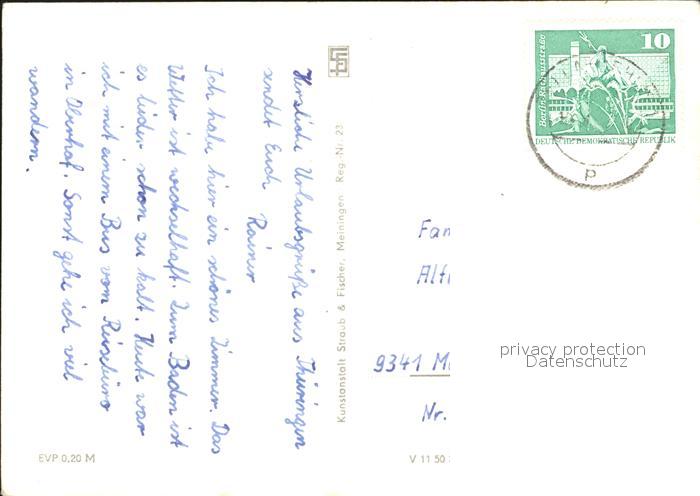 Herzliche Urlaubsgrüße aus Thüringen
sendet Euch
Rainer
Ich habe hier ein schönes Zimmer. Das
Wetter ist wechselhaft. Zum Baden ist
es leider schon zu kalt. Heute war
ich mit einem Bus vom Reisebüro
in Oberhof. Sonst gehe ich viel
wandern.
Kunstanstalt Straub & Fischer, Meiningen Reg.-Nr. 23
EVP 0,20 M
V 11 50
10
Berlin, Rathausstraße
DEUTSCHE DEMOKRATISCHE REPUBLIK
p
Fam
Alf
9341 M
Nr.
privacy protection
Datenschutz